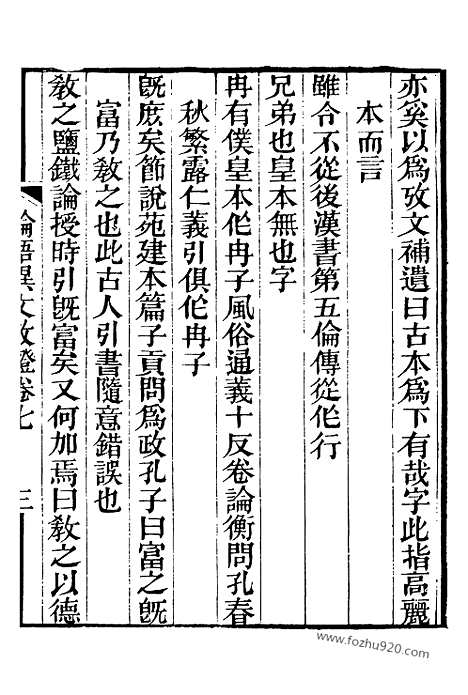 亦奚以爲攷文補遺曰古本爲下有哉字此指高麗
本而言
雖令不從後漢書第五倫傳從作行
兄弟也皇本無也字
冉有僕皇本作冉子風俗通義十反卷論衡問孔春
秋繁露仁義引俱作冉子
旣庶矣節說苑建本篇子貢問爲政孔子曰富之旣
富乃敎之也此古人引書隨意錯誤也
敎之鹽鐵論授時引旣富矣又何加焉曰敎之以德
論語異文攷證卷七
三
www.fozhu920.com